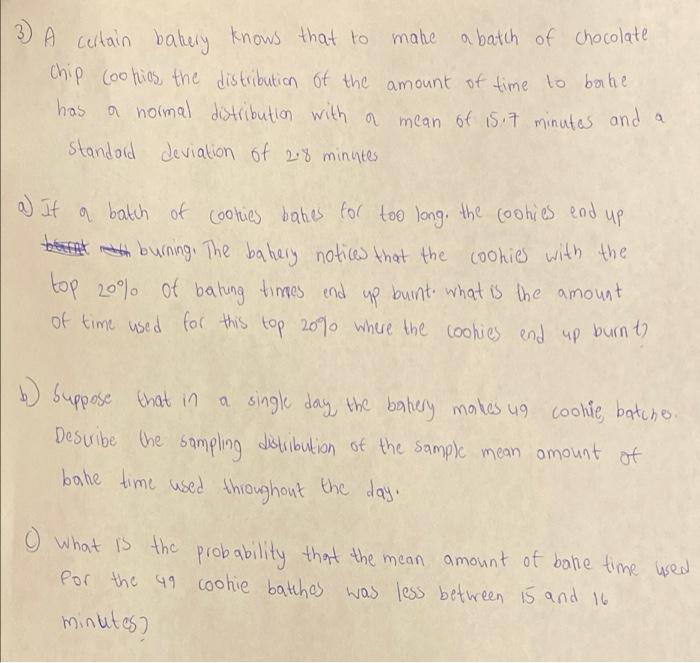 3) A certain bakery knows that to make a batch of chocolate
chip cookies the distribution of the amount of time to bake
has a normal distribution with a mean of 15.7 minutes and a
standard deviation of 2.8 minutes
a) If a batch of cookies bakes for too long. the cookies end up
burning. The bakery notices that the cookies with the
top 20% of baking times end up burnt. what is the amount
of time used for this top 20% where the cookies end up burnt?
b) Suppose that in a single day, the bakery makes 49 cookie batches.
Describe the sampling distribution of the sample mean amount of
bake time used throughout the day.
c) What is the probability that the mean amount of bake time used
for the 49 cookie batches was less between 15 and 16
minutes?